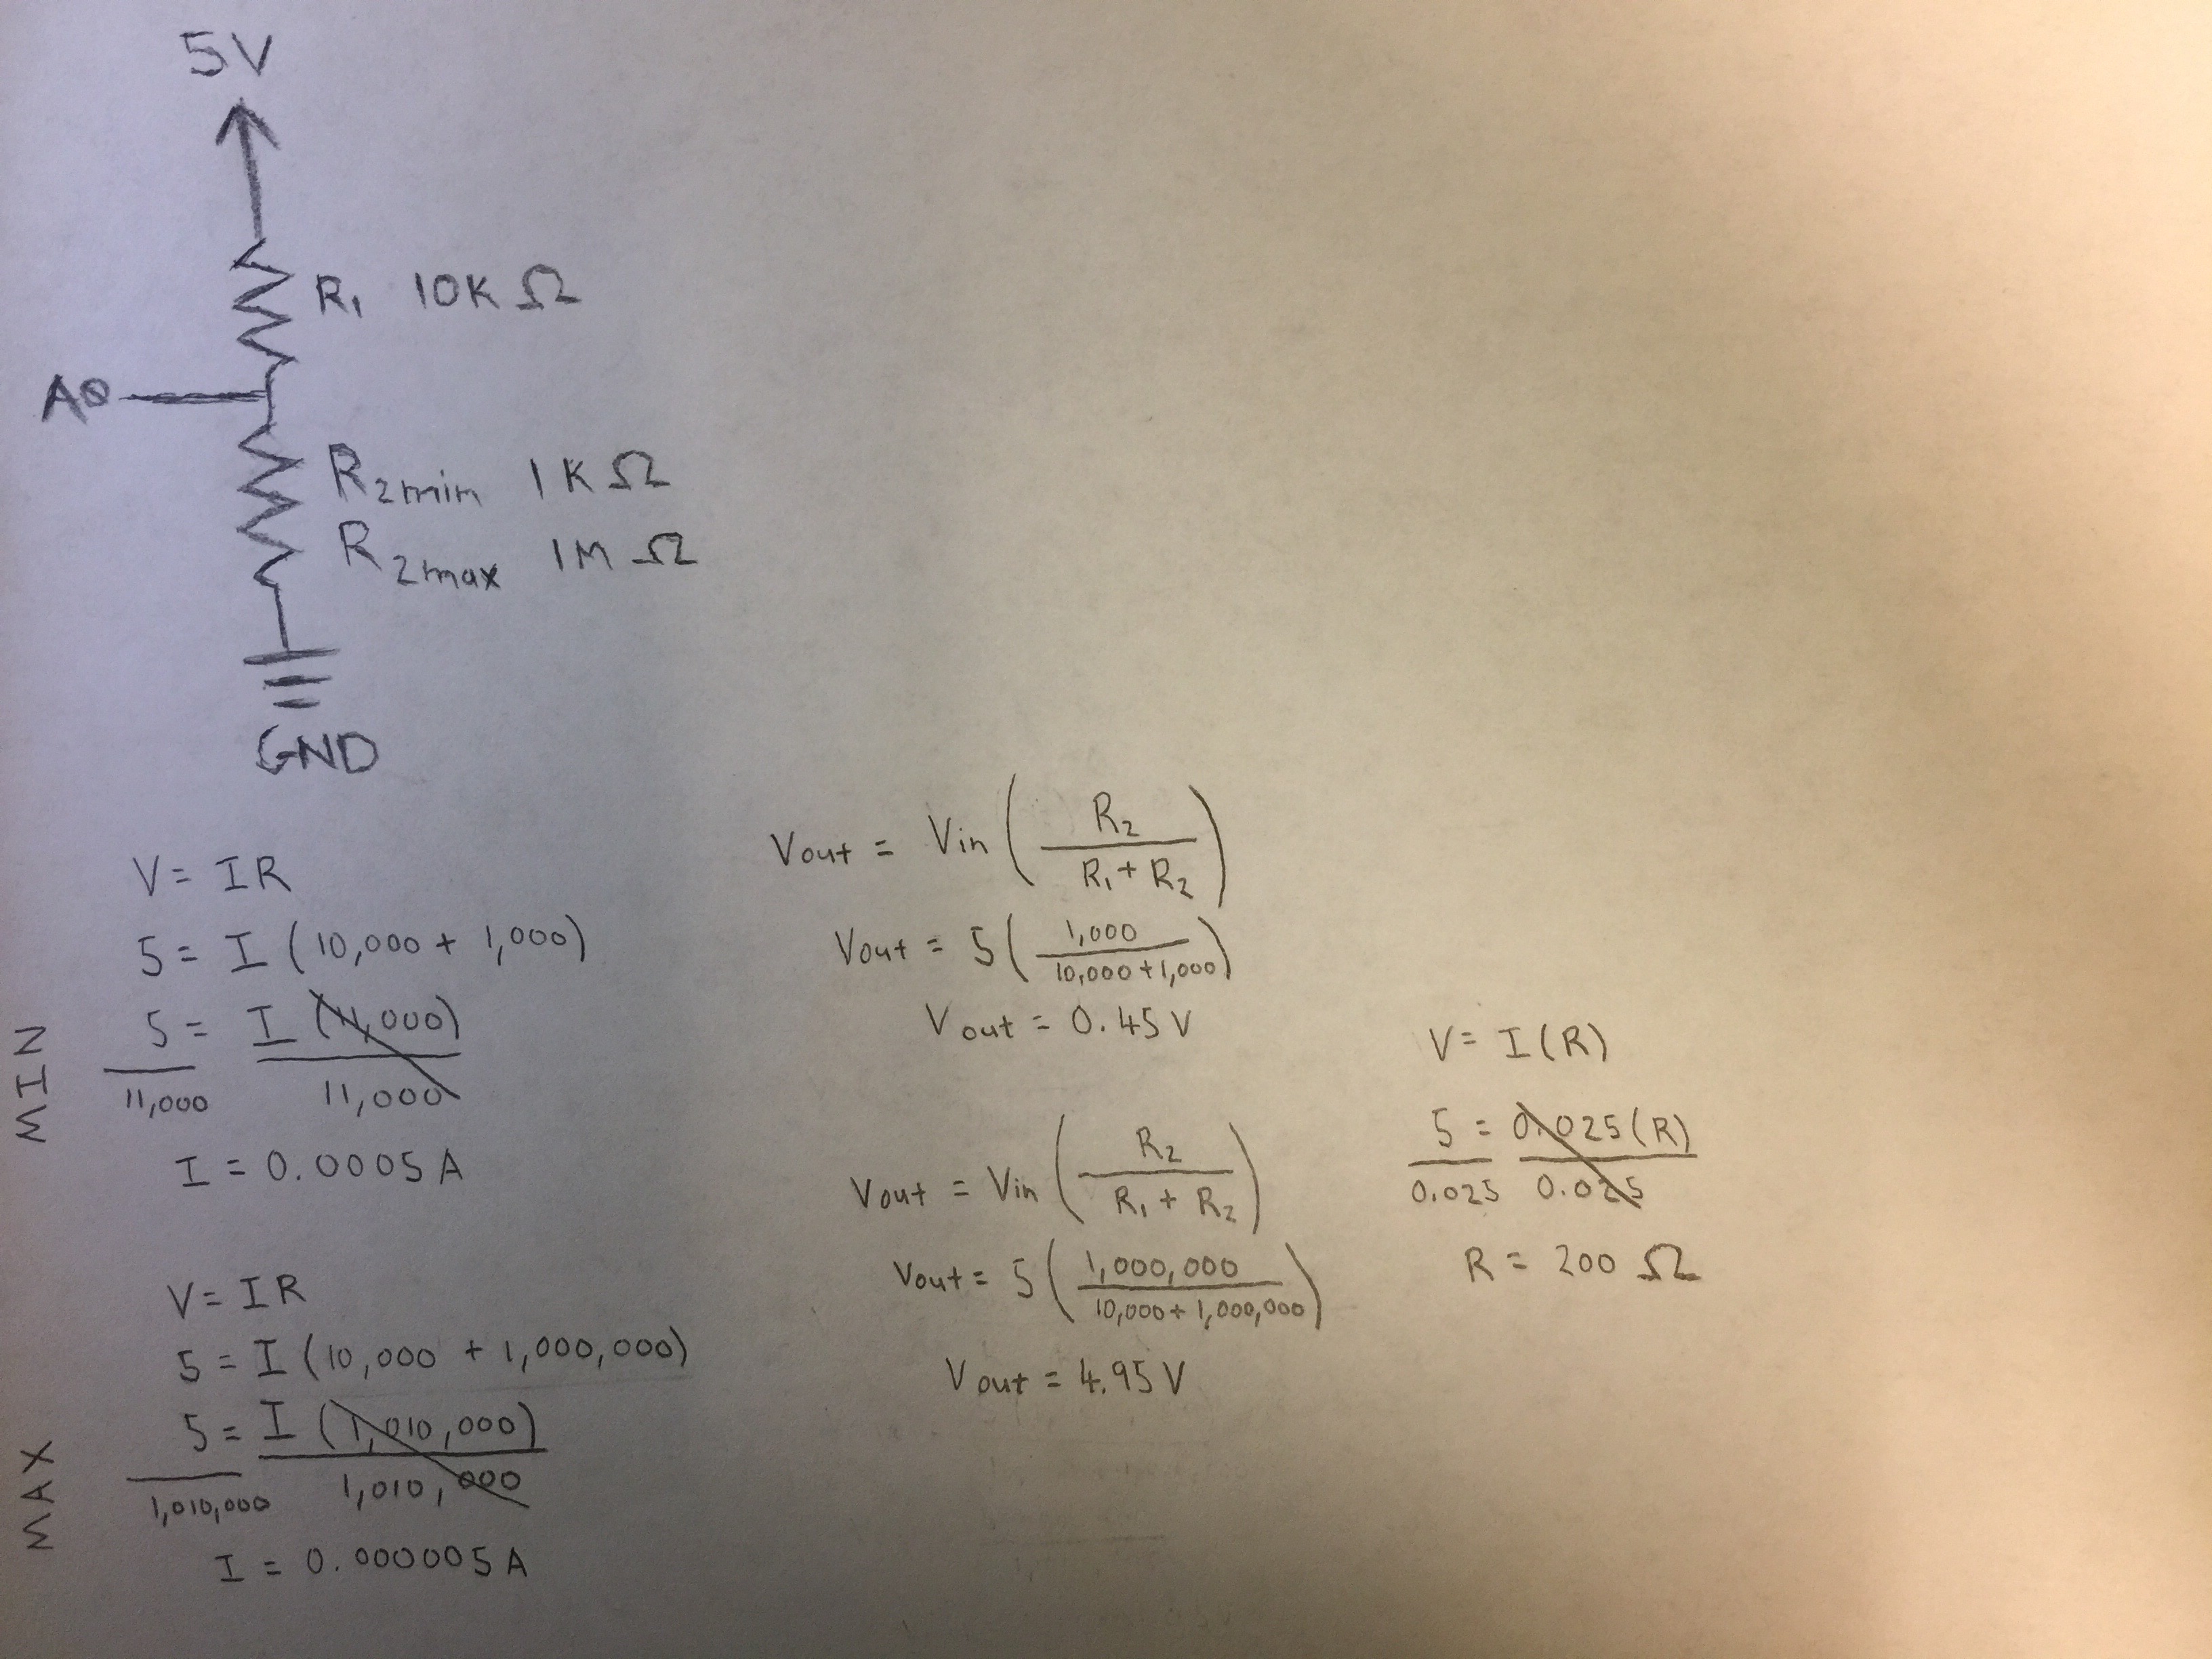 5V
R₁ 10K Ω
A0
R₂min 1K Ω
R₂max 1M Ω
GND
MIN
V = IR
5 = I (10,000 + 1,000)
5 = I (11,000)
11,000 11,000
I = 0.0005 A
MAX
V = IR
5 = I (10,000 + 1,000,000)
5 = I (1,010,000)
1,010,000 1,010,000
I = 0.000005 A
Vout = Vin ( R₂
R₁ + R₂ )
Vout = 5 ( 1,000
10,000 + 1,000 )
Vout = 0.45 V
Vout = Vin ( R₂
R₁ + R₂ )
Vout = 5 ( 1,000,000
10,000 + 1,000,000 )
Vout = 4.95 V
V = I (R)
5 = 0.025 (R)
0.025 0.025
R = 200 Ω